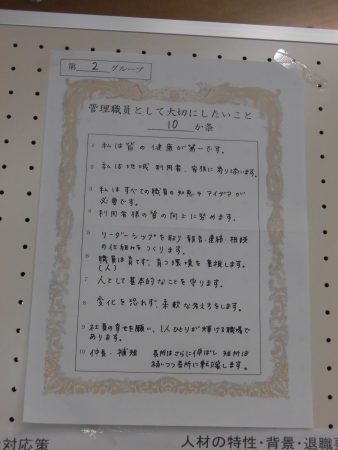 第 2 グループ
管理職員として大切にしたいこと
10 か条
1 私は皆の健康が第一です。
2 私は地域、利用者、家族に寄り添います。
3 私はすべての職員の知恵やアイデアが
必要です。
4 利用者様の質の向上に努めます。
5 リーダーシップを取り報告・連絡・相談
の仕組みをつくります。
6 職員は育てず、育つ環境を重視します。
(人)
7 人として基本的なことを守ります。
8 変化を恐れず、柔軟な考えをします。
9 社員の幸せを願い、1人ひとりが輝ける職場で
あります。
10 伸長・補短 長所はさらに伸ばし 短所は
補いつつ長所に転嘱します。
対応策
人材の特性・背景・退職